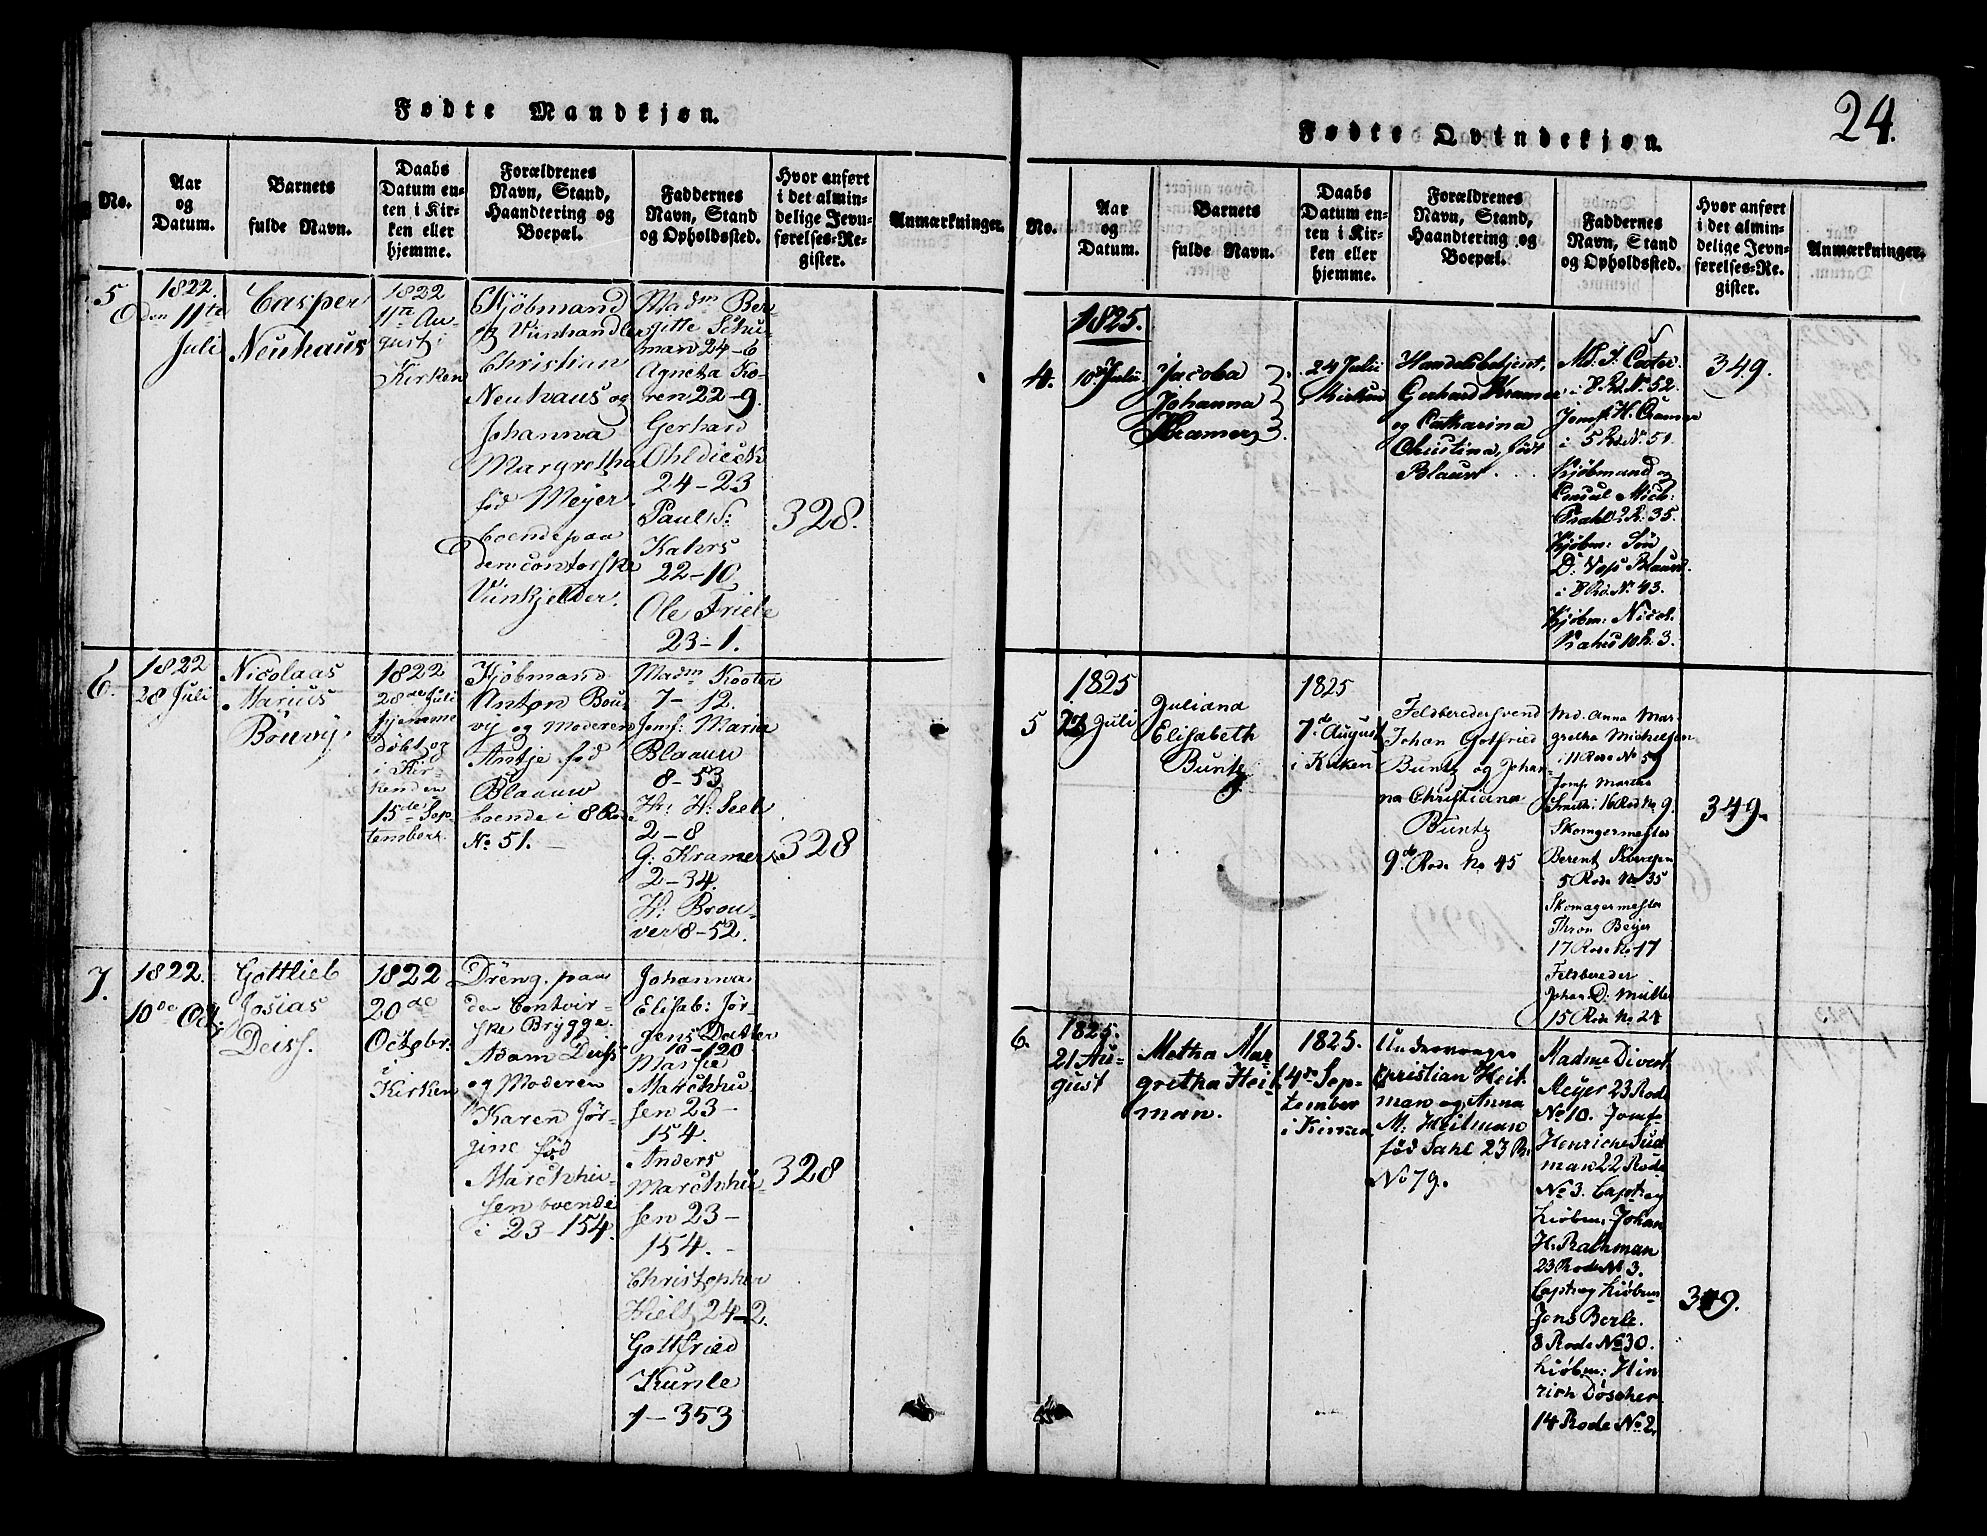 Fødte Mandkjøn.
No.
Aar
og
Datum.
Barnets
fulde Navn.
Daabs
Datum en-
ten i Kir-
ken eller
hjemme.
Forældrenes
Navn, Stand,
Haandtering og
Boepæl.
Faddernes
Navn, Stand
og Opholdssted.
Hvor anført
i det almin-
delige Jevn-
førelses-Re-
gister.
Anmærkninger.
5
1822.
den 11te
Juli
Casper
Neuhaus
1822
11te Au-
gust i
Kirken
Kjøbmand
og Viinhandler
Christian
Neuhaus og
Johanna
Margretha
fød Meyer
boende paa
den contorske
Viinkjelder.
Madm Ber
gitte Schu-
man 24-6
Agneta Ko-
ren 22-9.
Gerhard
Ohldieck
24-23
Paul S:
Kahrs
22-10
Ole Friele
23-1.
328.
6.
1822
28 Juli
Nicolaas
Marius
Bouwy.
1822
28de Juli
hjemme
døbt og
i Kir-
ken den
15de Sep-
tember.
Kjøbmand
Anton Bou
wy og Moderen
Antje fød
Blaauw
boende i 8 Rode
No 51.
Madm Kooter
7-12.
Jomf: Maria
Blaauw
8-53
Hr: H: Seel
2-8
G: Kramer
2-34.
H: Brou-
wer 8-52.
328
7.
1822.
10de Oct:
Gottlieb
Josias
Deiss.
1822
20de
Octobr.
i
Kirken
Dreng. paa
den Contoir-
ske Brygge
Adam Deiss
og Moderen
Karen Jør-
gine fød
Marckhu-
sen boende
i 23-154.
Johanna
Elisab: Jør
gens Datter
10-120
Massie
Marckhu-
sen 23-
154.
Anders
Marckhu-
sen 23-
154.
Christopher
Hielt 24-2.
Gottfried
Kunle
1-353
328
24.
Fødte Qvindekjøn.
No.
Aar
og
Datum.
Barnets
fulde Navn.
Daabs
Datum en-
ten i Kir-
ken eller
hjemme.
Forældrenes
Navn, Stand,
Haandtering og
Boepæl.
Faddernes
Navn, Stand
og Opholdssted.
Hvor anført
i det almin-
delige Jevn-
førelses-Re-
gister.
Anmærkninger.
1825.
4.
10de Julii
Jacoba
Johanna
Kramer
24 Julii
Kirken
Handelsbetjent,
Gerhard Kramer
og Catharina
Christina, født
Blauw.
Md: J. Cooter
i 8 Rd. No. 52.
Jomf. H. Cramer
i 5 Rd. No. 51.
Kjøbmand og
Consul Mich:
Krahl 2 R: 35.
Kjøbm: Søn
D: Vos Blauw
i 8 Rd. No. 43.
Kjøbm: Nicol.
Kahrs 10 R. 3.
349.
5
1825
Juli
Juliana
Elisabeth
Buntz
1825
7de August
i Kirken
Feldberedersvend
Johan Gotfried
Buntz og Johan-
na Christiana
Buntz
9de Rode No 45
Md. Anna Mar-
gretha Michelsen
i 11 Rode No 59
Jomf Martha
Smith: 16 Rode No 9.
Skomagermester
Berent
5 Rode No 35
Skomagermester
Thron Beyer
17 Rode No 17
Feldbereder
Johan D: Müller
15 Rode No 24
349.
6.
1825.
21 Au-
gust
Metha Mar
gretha Heit
man.
1825.
4de Sep-
tember
i Kirken
Undervoager
Christian Heit
man og Anna
M: Heitman
fød Sahl 23 R.
No 79.
Madme Divert
Meyer 23 Rode
No 10. Jomf:
Henriche Sud
man 22 Rode
No 3. Capt og
kiøbm: Johan
H. Rathman
23 Rode No 3.
Capt og kiøbm
Jens Berle.
8 Rode No 30.
kiøbm: Hin
rich Døscher
14 Rode No 2.
349.